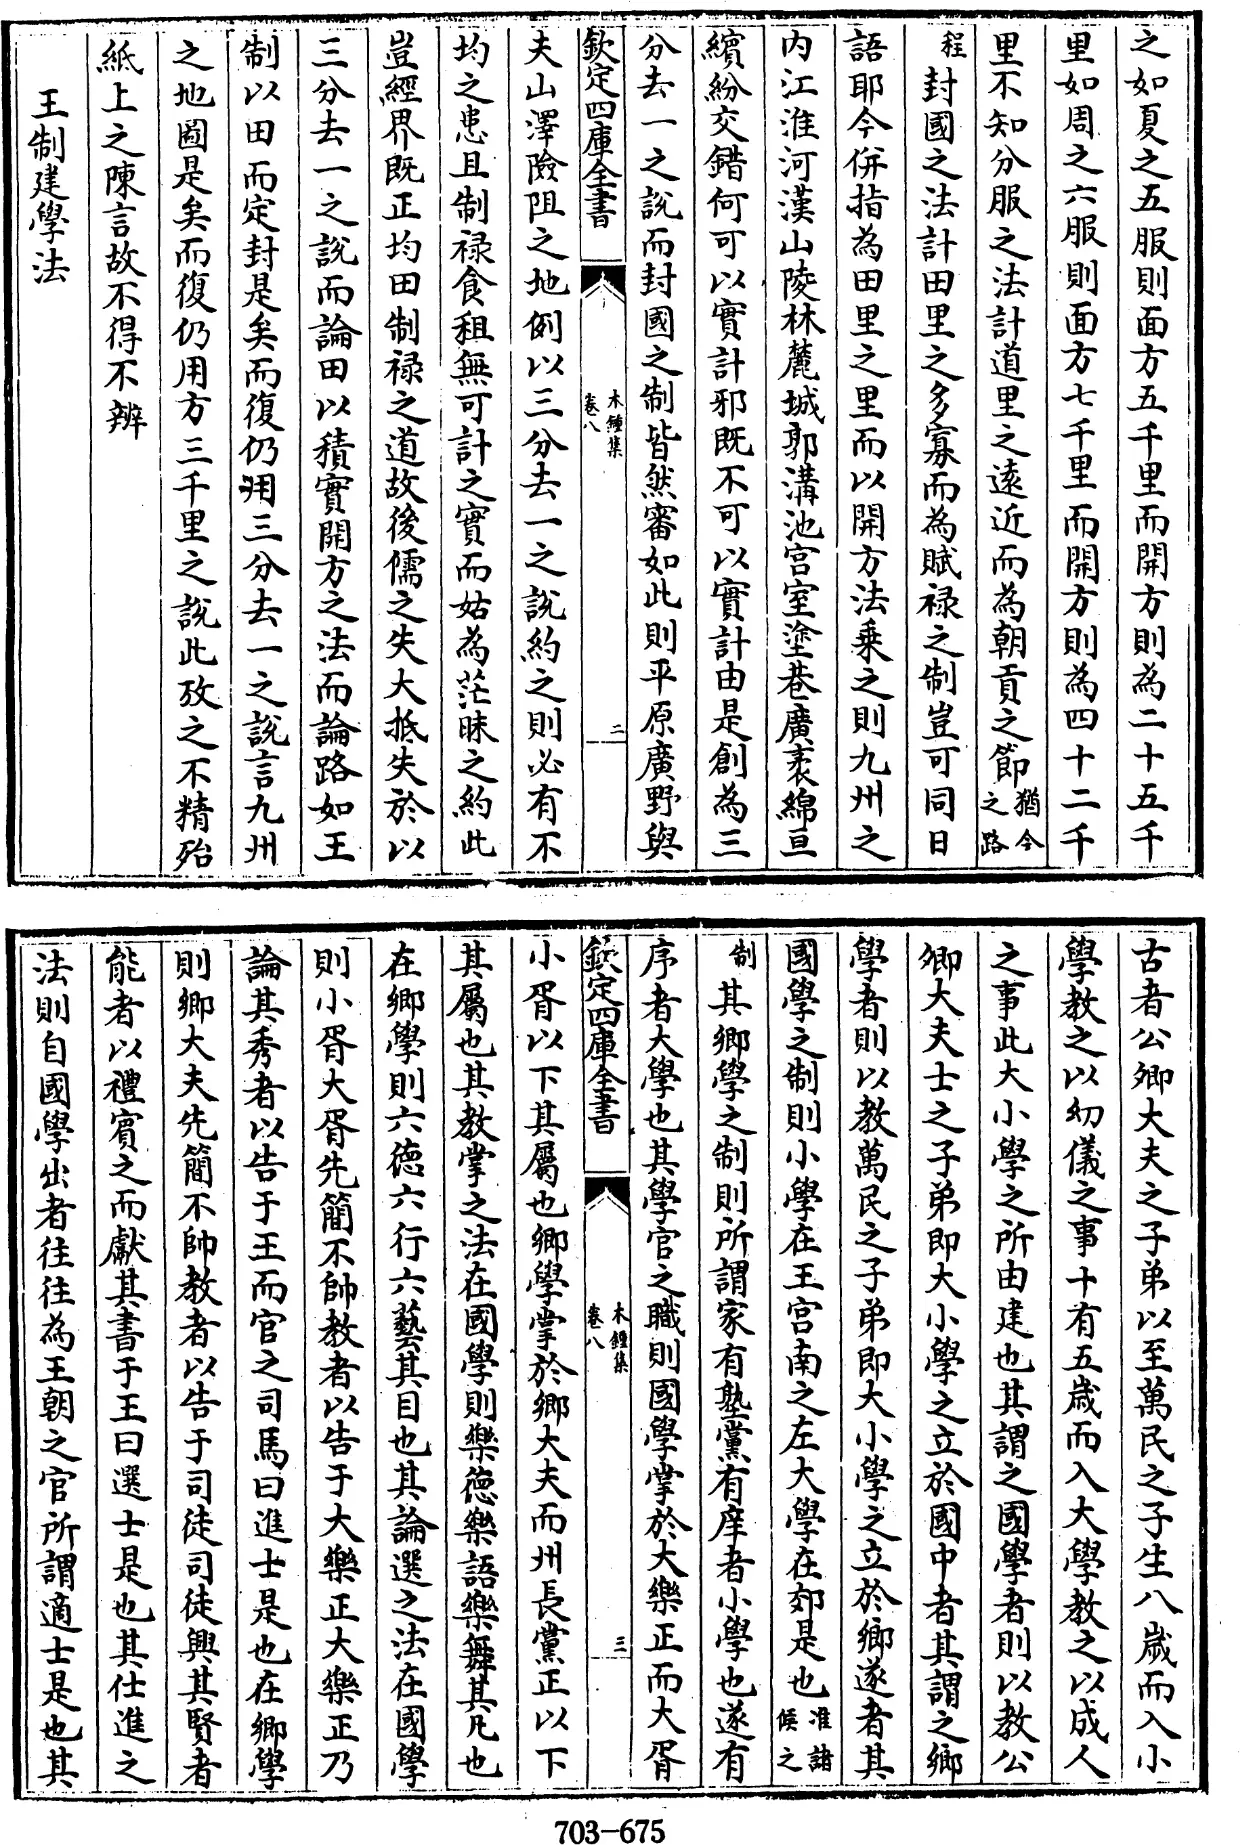 之如夏之五服則面方五千里而開方則為二十五千
里如周之六服則面方七千里而開方則為四十二千
里不知分服之法計道里之遠近而為朝貢之節猶今之路
程封國之法計田里之多寡而為賦禄之制豈可同日
語耶今併指為田里之里而以開方法乘之則九州之
内江淮河漢山陵林麓城郭溝池宫室塗巷廣袤綿亘
繽紛交錯何可以實計邪既不可以實計由是創為三
分去一之說而封國之制皆然審如此則平原廣野與
欽定四庫全書
木鍾集
卷八
二
夫山澤險阻之地例以三分去一之說約之則必有不
均之患且制禄食租無可計之實而姑為茫昧之約此
豈經界既正均田制禄之道故後儒之失大抵失於以
三分去一之說而論田以積實開方之法而論路如王
制以田而定封是矣而復仍用三分去一之說言九州
之地圖是矣而復仍用方三千里之說此攷之不精殆
紙上之陳言故不得不辨
王制建學法
古者公卿大夫之子弟以至萬民之子生八歲而入小
學教之以幼儀之事十有五歲而入大學教之以成人
之事此大小學之所由建也其謂之國學者則以教公
卿大夫士之子弟即大小學之立於國中者其謂之鄉
學者則以教萬民之子弟即大小學之立於鄉遂者其
國學之制則小學在王宫南之左大學在郊是也准諸侯之
制其鄉學之制則所謂家有塾黨有庠者小學也遂有
序者大學也其學官之職則國學掌於大樂正而大胥
欽定四庫全書
木鍾集
卷八
三
小胥以下其屬也鄉學掌於鄉大夫而州長黨正以下
其屬也其教掌之法在國學則樂德樂語樂舞其凡也
在鄉學則六德六行六藝其目也其論選之法在國學
則小胥大胥先簡不帥教者以告于大樂正大樂正乃
論其秀者以告于王而官之司馬曰進士是也在鄉學
則鄉大夫先簡不帥教者以告于司徒司徒興其賢者
能者以禮賓之而獻其書于王曰選士是也其仕進之
法則自國學出者往往為王朝之官所謂適士是也其
703-675